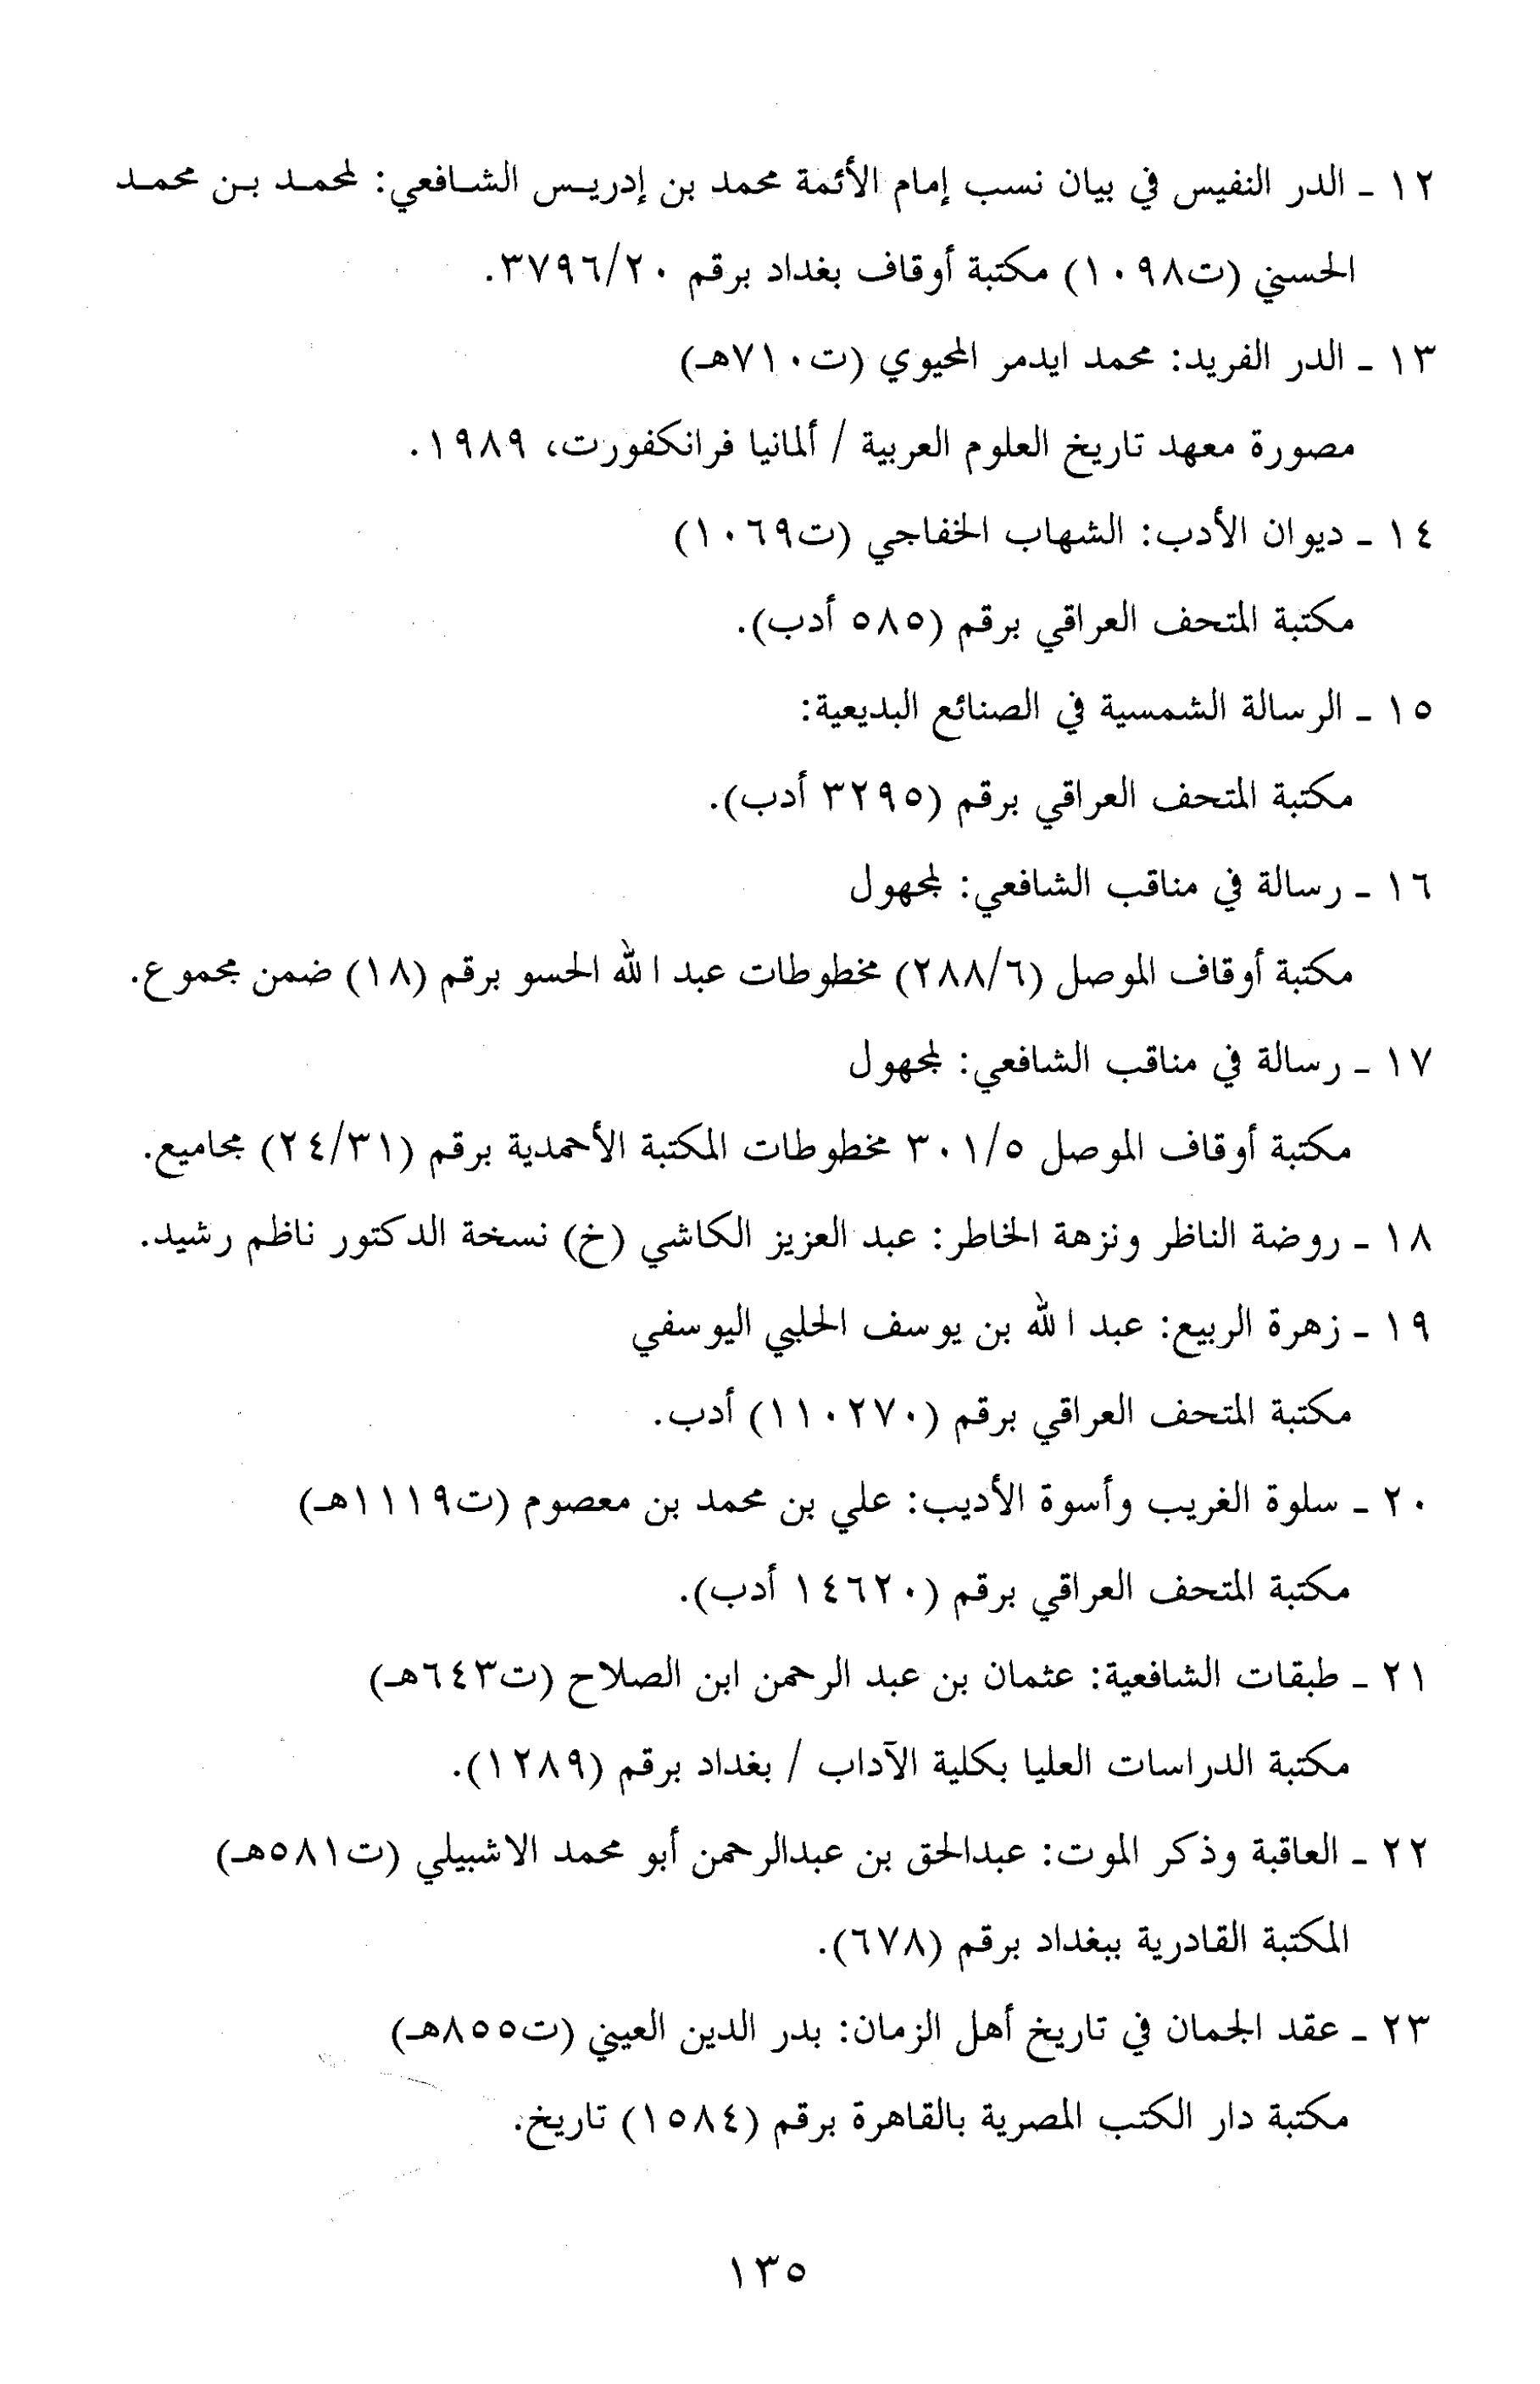 ١٢ - الدر النفيس في بيان نسب إمام الأئمة محمد بن إدريس الشافعي: لمحمد بن محمد
الحسني (ت١٠٩٨) مكتبة أوقاف بغداد برقم ٣٧٩٦/٢٠.
١٣ - الدر الفريد: محمد ايدمر المحيوي (ت٧١٠هـ)
مصورة معهد تاريخ العلوم العربية / ألمانيا فرانكفورت، ١٩٨٩.
١٤ - ديوان الأدب: الشهاب الخفاجي (ت١٠٦٩)
مكتبة المتحف العراقي برقم (٥٨٥ أدب).
١٥ - الرسالة الشمسية في الصنائع البديعية:
مكتبة المتحف العراقي برقم (٣٢٩٥ أدب).
١٦ - رسالة في مناقب الشافعي: لمجهول
مكتبة أوقاف الموصل (٢٨٨/٦) مخطوطات عبد الله الحسو برقم (١٨) ضمن مجموع.
١٧ - رسالة في مناقب الشافعي: لمجهول
مكتبة أوقاف الموصل ٣٠١/٥ مخطوطات المكتبة الأحمدية برقم (٢٤/٣١) مجاميع.
١٨ - روضة الناظر ونزهة الخاطر: عبد العزيز الكاشي (خ) نسخة الدكتور ناظم رشيد.
١٩ - زهرة الربيع: عبد الله بن يوسف الحلبي اليوسفي
مكتبة المتحف العراقي برقم (١١٠٢٧٠) أدب.
٢٠ - سلوة الغريب وأسوة الأديب: علي بن محمد بن معصوم (ت١١١٩هـ)
مكتبة المتحف العراقي برقم (١٤٦٢٠ أدب).
٢١ - طبقات الشافعية: عثمان بن عبد الرحمن ابن الصلاح (ت٦٤٣هـ)
مكتبة الدراسات العليا بكلية الآداب / بغداد برقم (١٢٨٩).
٢٢ - العاقبة وذكر الموت: عبدالحق بن عبدالرحمن أبو محمد الاشبيلي (ت٥٨١هـ)
المكتبة القادرية ببغداد برقم (٦٧٨).
٢٣ - عقد الجمان في تاريخ أهل الزمان: بدر الدين العيني (ت٨٥٥هـ)
مكتبة دار الكتب المصرية بالقاهرة برقم (١٥٨٤) تاريخ.
١٣٥